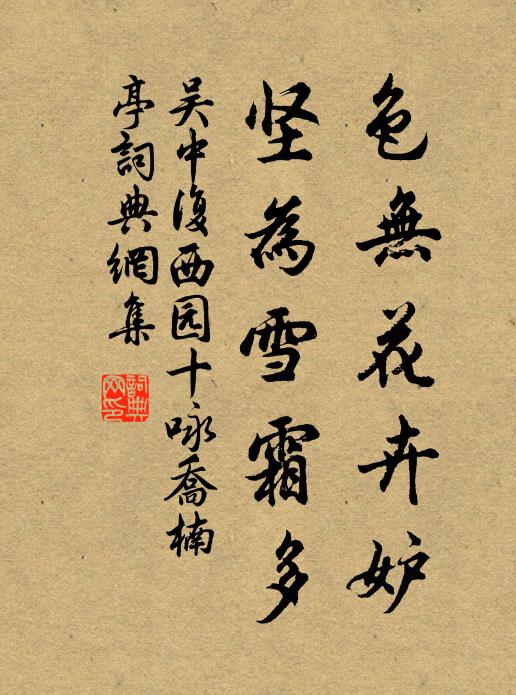 色無花卉妒
坚為雪霜多
吴中復西园十咏喬楠
亭詞典網集
詞典
网印